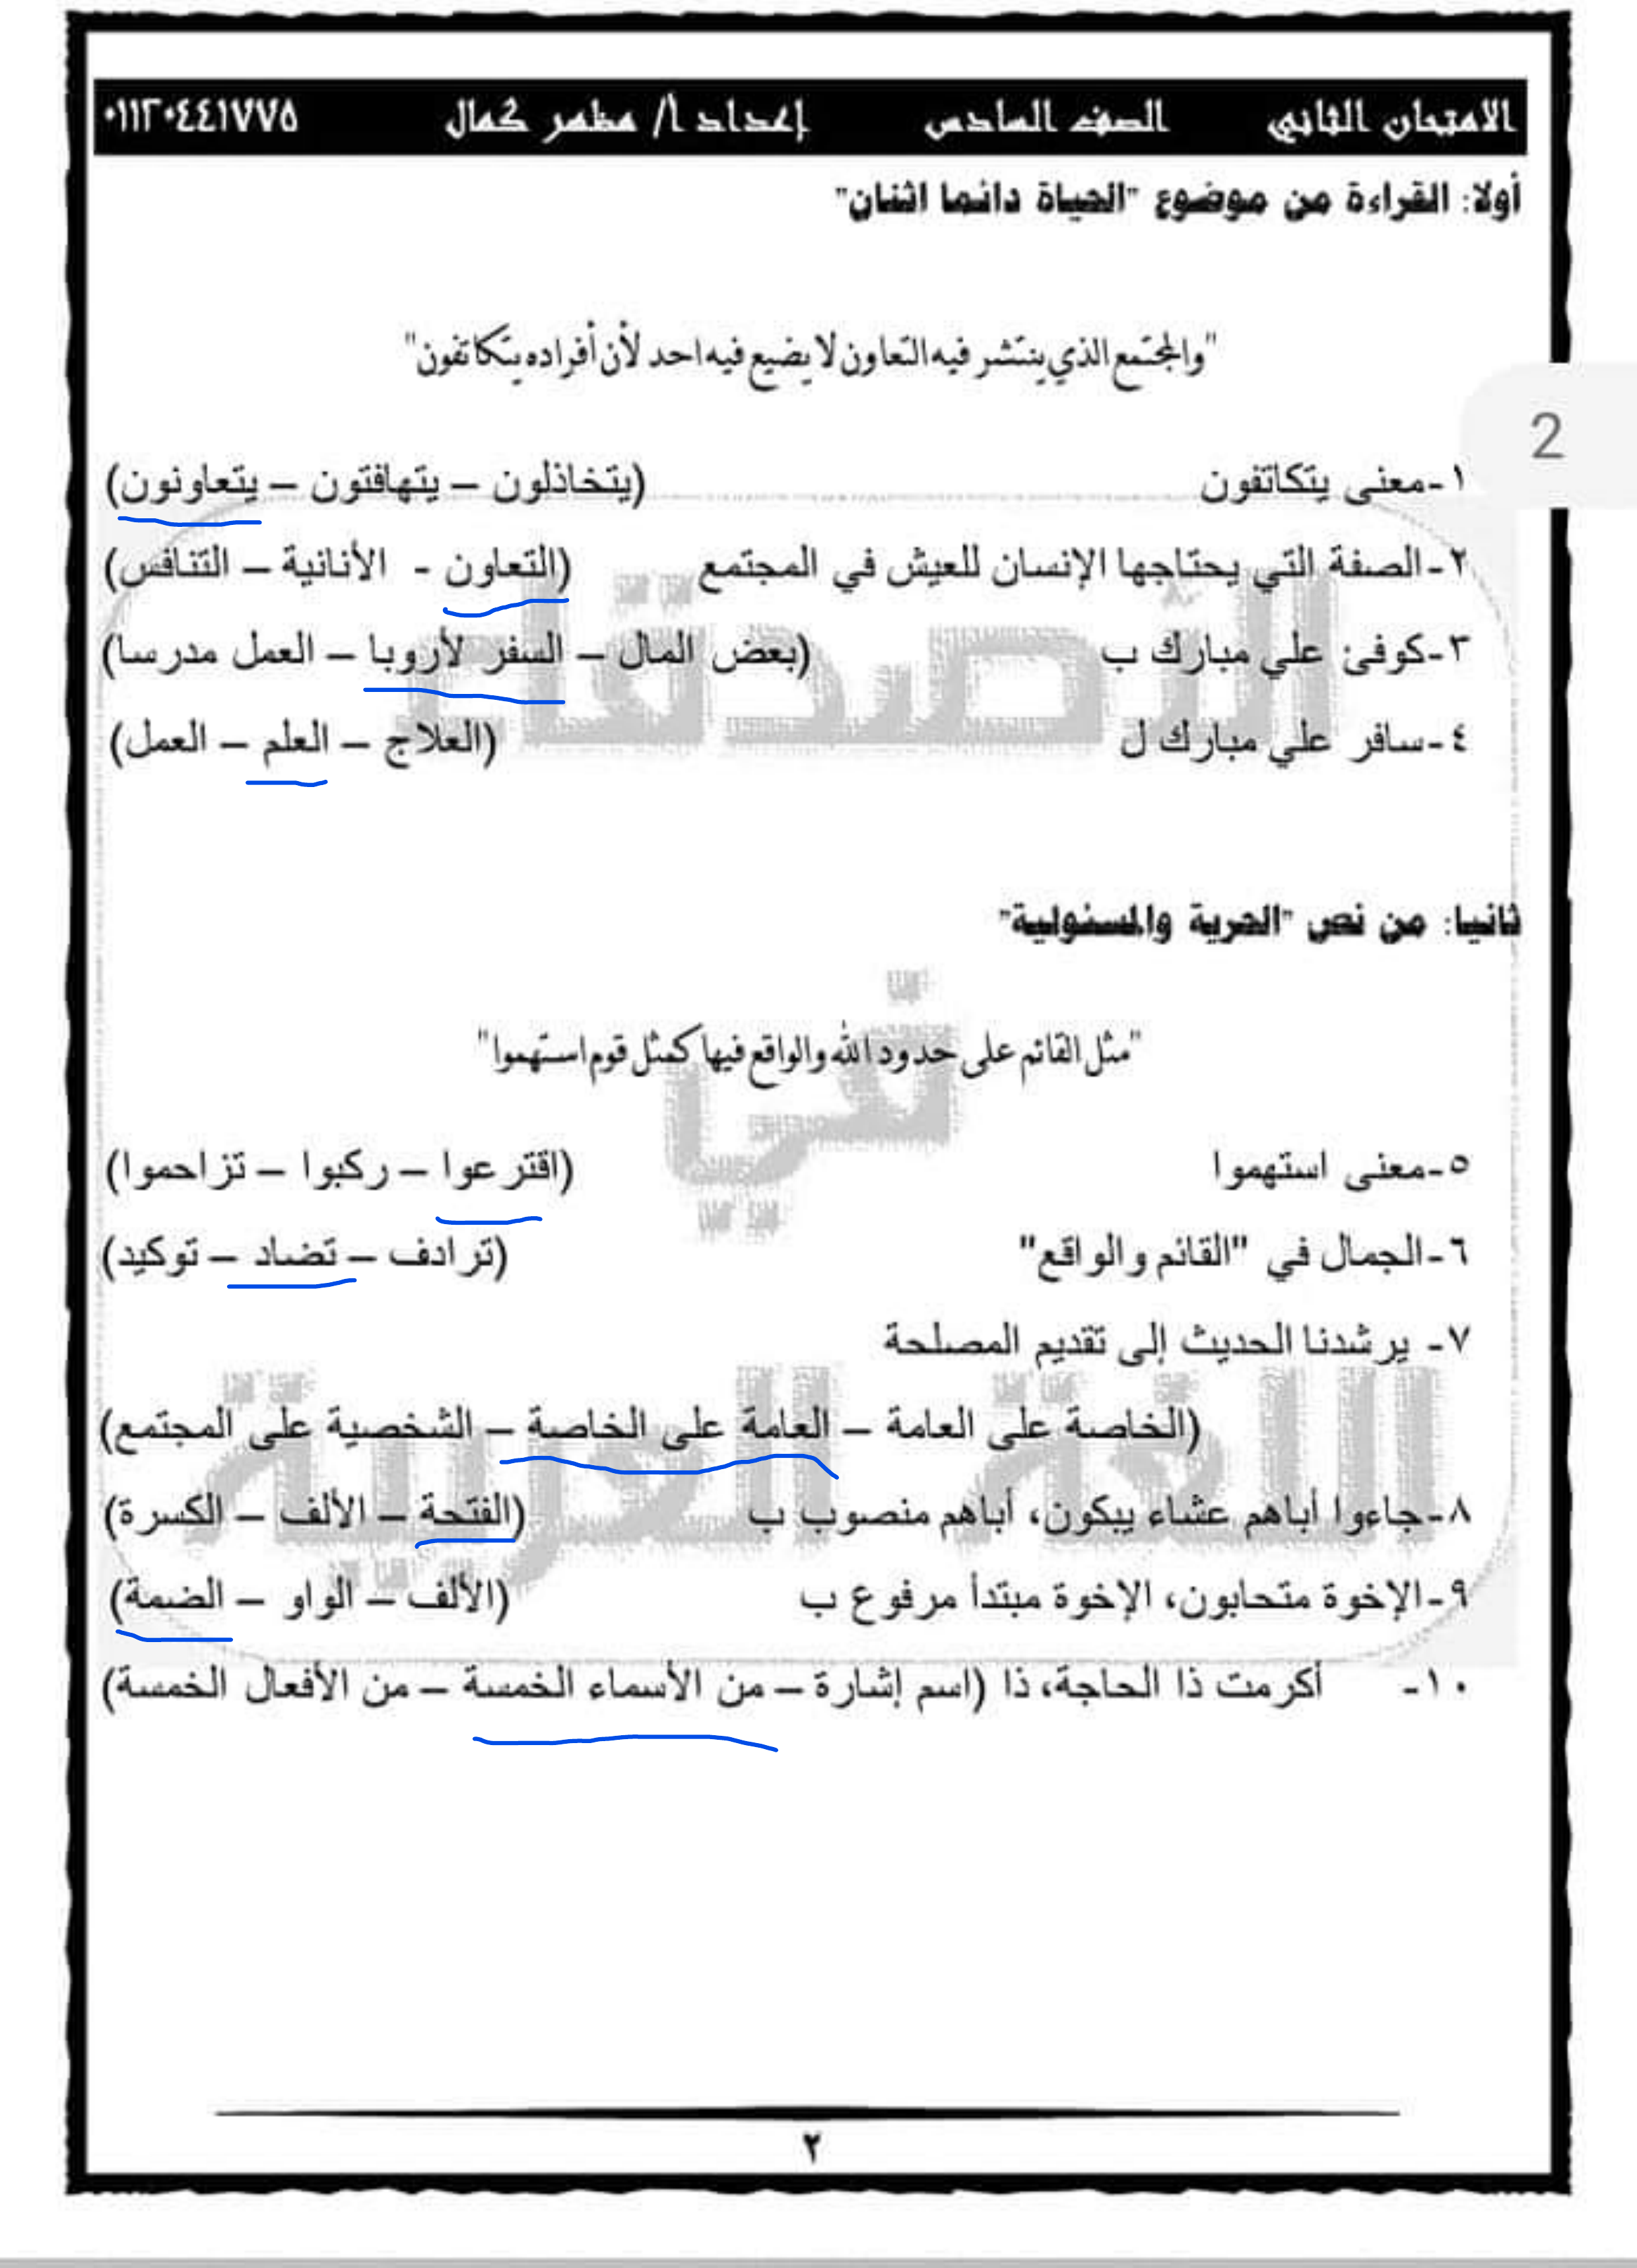 الامتحان الثاني الصف السادس إعداد أ/ مظهر كمال ٠١١٢٠٤٤١٧٧٥
أولا: القراءة من موضوع "الحياة دائما اثنان"
"والمجتمع الذي ينتشر فيه التعاون لا يضيع فيه احد لأن أفراده يتكاتفون"
2
١-معنى يتكاتفون (يتخاذلون – يتهافتون – يتعاونون)
٢-الصفة التي يحتاجها الإنسان للعيش في المجتمع (التعاون - الأنانية – التنافس)
٣-كوفئ علي مبارك ب (بعض المال – السفر لأروبا – العمل مدرسا)
٤-سافر علي مبارك ل (العلاج – العلم – العمل)
ثانيا: من نص "الحرية والمسئولية"
"مثل القائم على حدود الله والواقع فيها كمثل قوم استهموا"
٥-معنى استهموا (اقترعوا – ركبوا – تزاحموا)
٦-الجمال في "القائم والواقع" (ترادف – تضاد – توكيد)
٧- يرشدنا الحديث إلى تقديم المصلحة
(الخاصة على العامة – العامة على الخاصة – الشخصية على المجتمع)
٨-جاءوا أباهم عشاء يبكون، أباهم منصوب ب (الفتحة – الألف – الكسرة)
٩-الإخوة متحابون، الإخوة مبتدأ مرفوع ب (الألف – الواو – الضمة)
١٠- أكرمت ذا الحاجة، ذا (اسم إشارة – من الأسماء الخمسة – من الأفعال الخمسة)
الأصدقاء
في
اللغة العربية
٢